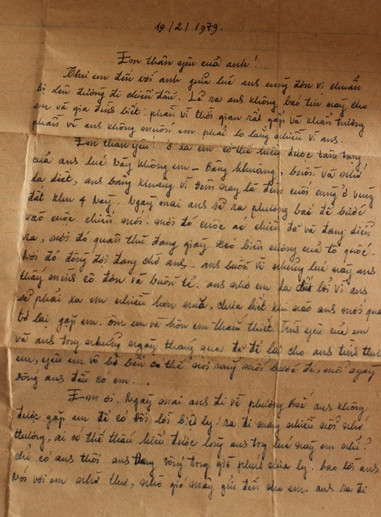 19/2/1979.
Em thân yêu của anh!
Khi em đến với anh giữa lúc ans cũng đơn vị chuẩn
bị lên đường đi chiến đấu. Lẽ ra ans không báo tin này cho
em và gia đình biết. phần vì thời gian rất gấp và khẩn trương
phần vì ans không muốn em phải lo lắng nhiều vì ans.
Em thân yêu! Ở xa em có thể hiểu được tâm trạng
của ans lúc này không em - bâng khuâng, buồn và nhớ
da diết, ans bâng khuâng vì đêm nay là đêm cuối cùng ở vùng
đất khu 4 này. Ngày mai ans sẽ ra phương bắc để bước
vào cuộc chiến mới. nơi đó cuộc chiến đã và đang diễn
ra, nơi đó quân thù đang giày xéo biên cương của tổ quốc.
Nơi đó đồng đội đang chờ ans.. ans buồn vì những lúc này ans
thấy mình cô đơn và buồn tẻ. ans nhớ em da diết bởi vì ans
sẽ phải xa em nhiều hơn nữa, chưa biết khi nào ans mới quay
trở lại gặp em. ôm em và hôn em tham thiết. Tình yêu của em
và ans trong những ngày tháng qua đã để lại cho ans
em, yêu em vô bờ bến có thể nói rằng mỗi bước đi, mỗi
đều có em...
Em ơi, Ngày mai ans đi về phương Bắc ans không
được gặp em để có đôi lời biệt ly! ra đi mang nhiều nỗi nhớ
thương, ai có thể thấu hiểu được lòng ans trong lúc này em nhỉ?
chỉ có ans thôi ans trong giờ phút chia ly. bao lời ans
Nói với em nhờ thư, nhờ gió mây gửi đến cho em. ans ra đi